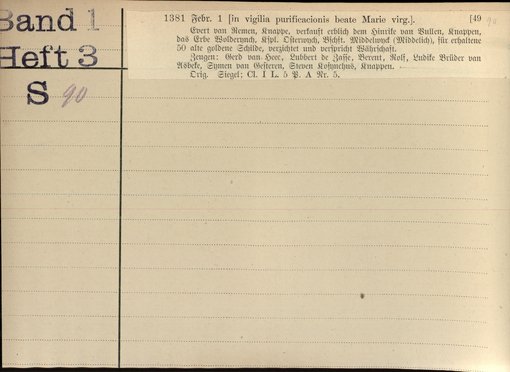 Band 1
Heft 3
S 90
1381 Febr. 1 [in vigilia purificacionis beate Marie virg.]. [49 90
Evert van Remen, Knappe, verkauft erblich dem Hinrike van Vullen, Knappen,
das Erbe Wolderynch, Kspl. Osterwych, Bschft. Middelwyck (Middelich), für erhaltene
50 alte goldene Schilde, verzichtet und verspricht Währschaft.
Zeugen: Gerd van Hoec, Lubbert de Zasse, Berent, Rolf, Ludike Brüder van
Asbeke, Symen van Gesteren, Steven Kosynchus, Knappen.
Orig. Siegel; Cl. I L. 5 P. A Nr. 5.